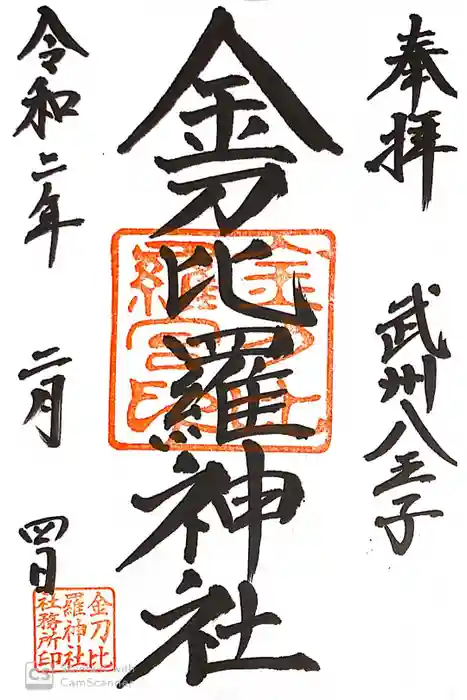 奉拝 武州八王子
金刀比羅神社
令和二年 二月 四日
金刀比
羅神社
社務所印
CS Scanned with
CamScanner